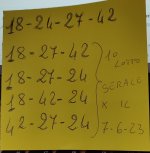 18-24-27-42
18-27-42
18-27-24
18-42-24
42-27-24
10
LOTTO
SERALE
X IL
7-6-23